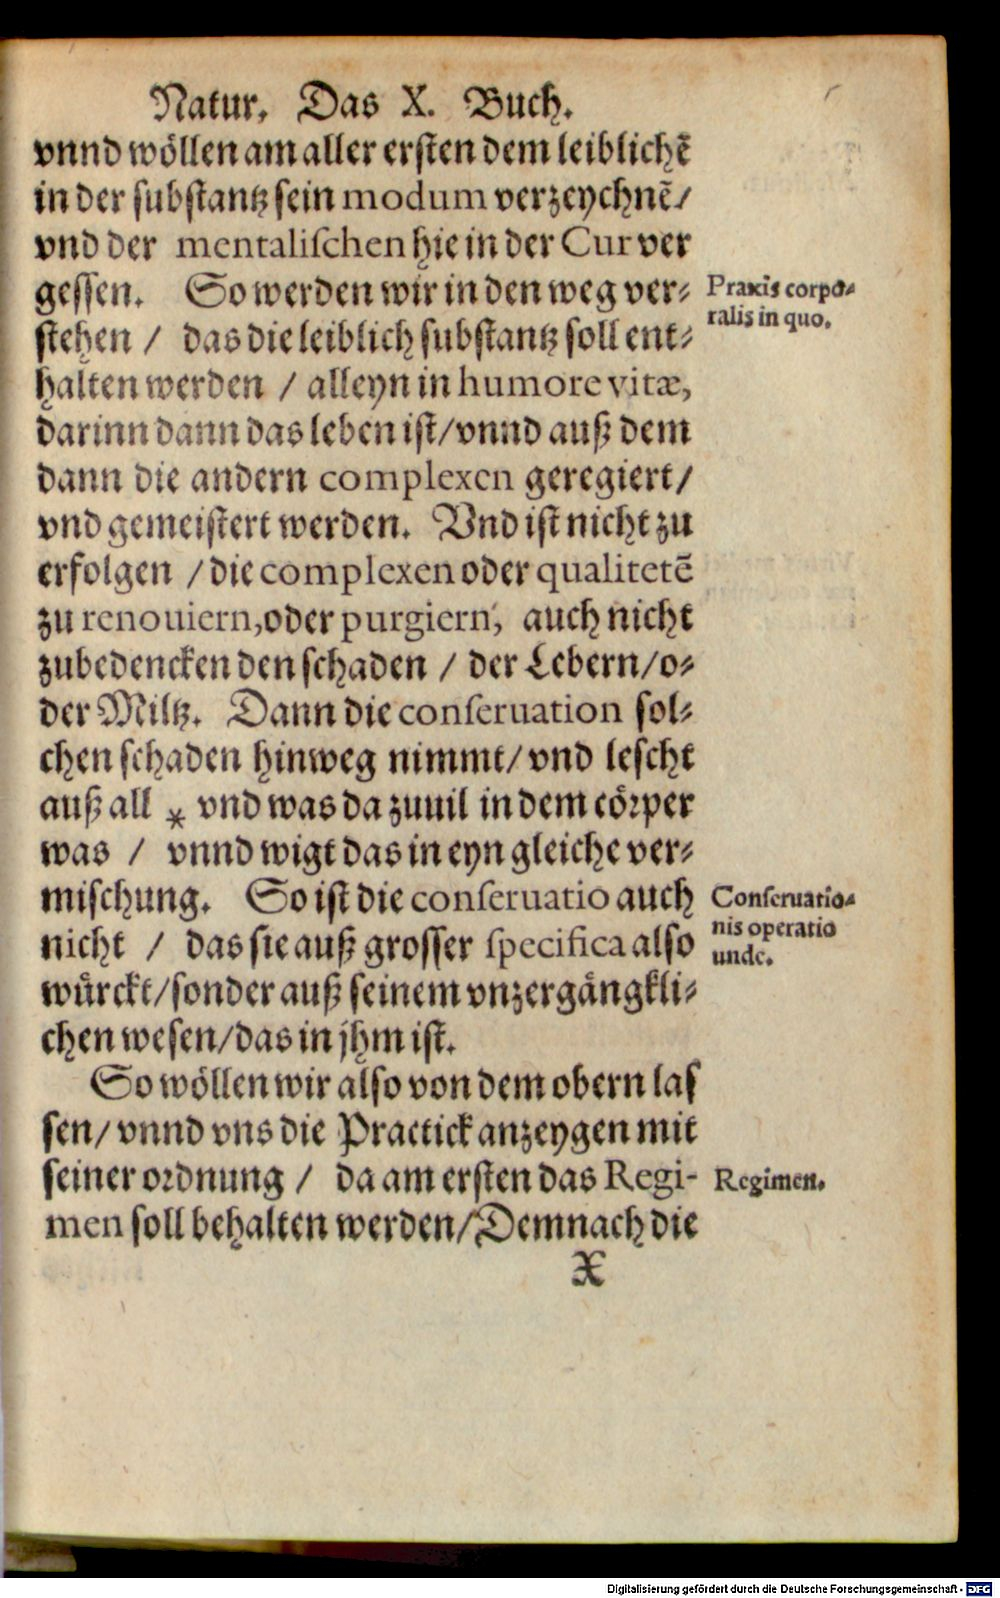 Natur. Das X. Buch.
vnnd wöllen am aller ersten dem leiblichẽ
in der substantz sein modum verzeychnẽ/
vnd der mentalischen hie in der Cur ver
gessen. So werden wir in den weg ver-
stehen / das die leiblich substantz soll ent-
halten werden / alleyn in humore vitæ,
darinn dann das leben ist/vnnd auß dem
dann die andern complexen geregiert/
vnd gemeistert werden. Vnd ist nicht zu
erfolgen / die complexen oder qualitetẽ
zu renouiern,oder purgiern, auch nicht
zubedencken den schaden / der Lebern/o-
der Miltz. Dann die conseruation sol-
chen schaden hinweg nimmt/vnd lescht
auß all * vnd was da zuuil in dem cörper
was / vnnd wigt das in eyn gleiche ver-
mischung. So ist die conseruatio auch
nicht / das sie auß grosser specifica also
würckt/sonder auß seinem vnzergängkli-
chen wesen/das in jhm ist.
So wöllen wir also von dem obern las
sen/vnnd vns die Practick anzeygen mit
seiner ordnung / da am ersten das Regi-
men soll behalten werden/Demnach die
X
Praxis corpo-
ralis in quo.
Conseruatio-
nis operatio
unde.
Regimen.
Digitalisierung gefördert durch die Deutsche Forschungsgemeinschaft - DFG